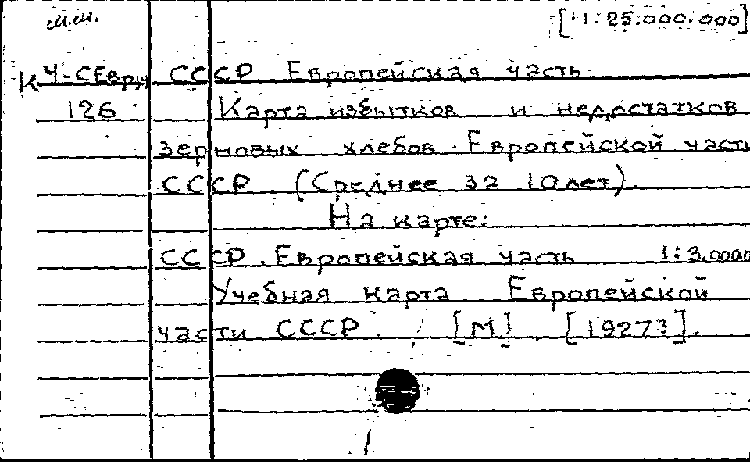 [1:25.000.000]
К Ч-СЕвр.ч СССР Европейская часть
126 Карта избытков и недостатков
зерновых хлебов Европейской части
СССР (Среднее за 10 лет).
На карте:
СССР. Европейская часть 1:3.000.000
Учебная карта Европейской
части СССР. [М] [1927?].